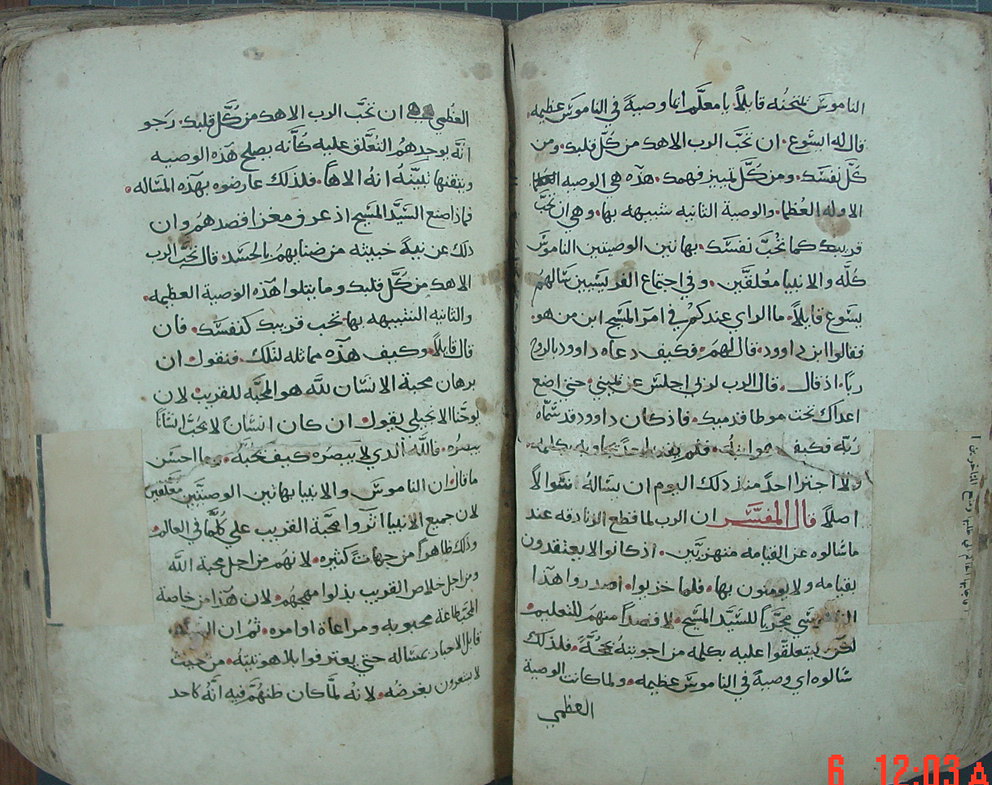 الناموس يمتحنه قايلاً يا معلم ايما وصية في الناموس عظيمه
قال له ايسوع ان تحب الرب الاهك من كل قلبك ومن
كل نفسك ومن كل تمييز فهمك هذه هي الوصيه
الاوله العظما والوصية الثانيه شبيهه بها وهي ان تحب
قريبك كما تحب نفسك بهاتين الوصيتين الناموس
كله والانبيا معلقين وفي اجتماع الفريسيين سالهم
يسوع قايلاً ما الراي عندكم في امر المسيح ابن من هو
فقالوا ابن داوود قال لهم فكيف دعاه داوود بالروح
رباً اذ قال قال الرب لربي اجلس عن يميني حتي اضع
اعداك تحت موطا قدميك فاذ كان داوود قد سماه
ربه فكيف هو ابنه فلم يقدر احداً يجاوبه بكلمه
ولا اجترا احداً منذ ذلك اليوم ان يساله شواً لاً
اصلاً قال المفسر ان الرب لما قطع الزنادقه عند
ما سالوه عن القيامه منهزيين اذ كانوا لا يعتقدون
بقيامه ولا يومنون بها فلما خزيوا اصدروا هذا
مجرباً للسيد المسيح لا قصداً منهم للتعليم
لكن ليتعلقوا عليه بكلمه من اجوبته بحجة فلذلك
سالوه اي وصية في الناموس عظيمه ولما كانت الوصية
العظمي
العظمي ان تحب الرب الاهك من كل قلبك رجو
انه يوجدهم التعلق عليه كانه يصلح هذه الوصيه
وينقنها نتيته انه الاهاً فلذلك عارضوه بهذه المساله
فماذا صنع السيد المسيح اذ عرف مغزا قصدهم وان
ذلك عن نية خبيثه من ضنايهم بالحسد قال تحب الرب
الاهك من كل قلبك وما يتلوا هذه الوصية العظيمه
والثانيه الشبيهه بها تحب قريبك كنفسك فان
قال قايلاً وكيف هذه مماثله لتلك فنقول ان
برهان محبة الانسان لله هو المحبه للقريب لان
يوحنا الانجيلي يقول ان كان انسان لا يحب انساناً
يبصره فالله الذي لا يبصره كيف يحبه وما احسن
ما قال ان الناموس والانبيا بهاتين الوصيتين معلقين
لان جميع الانبيا اثروا محبة القريب علي كلما في العالم
وذلك ظاهراً من جهات كثيره لانهم من اجل محبة الله
ومن اجل خلاص القريب بذلوا مهجهم لان هذا من خاصة
المحبة طاعة محبوبه ومراعاة اوامره ثم ان السيد
قابل الاحبار بمساله حتي يعترفوا بلاهوتيته من حيث
لا يشعرون بغرضه لانه لما كان ظنهم فيه انه كاحد
6 12:03 A